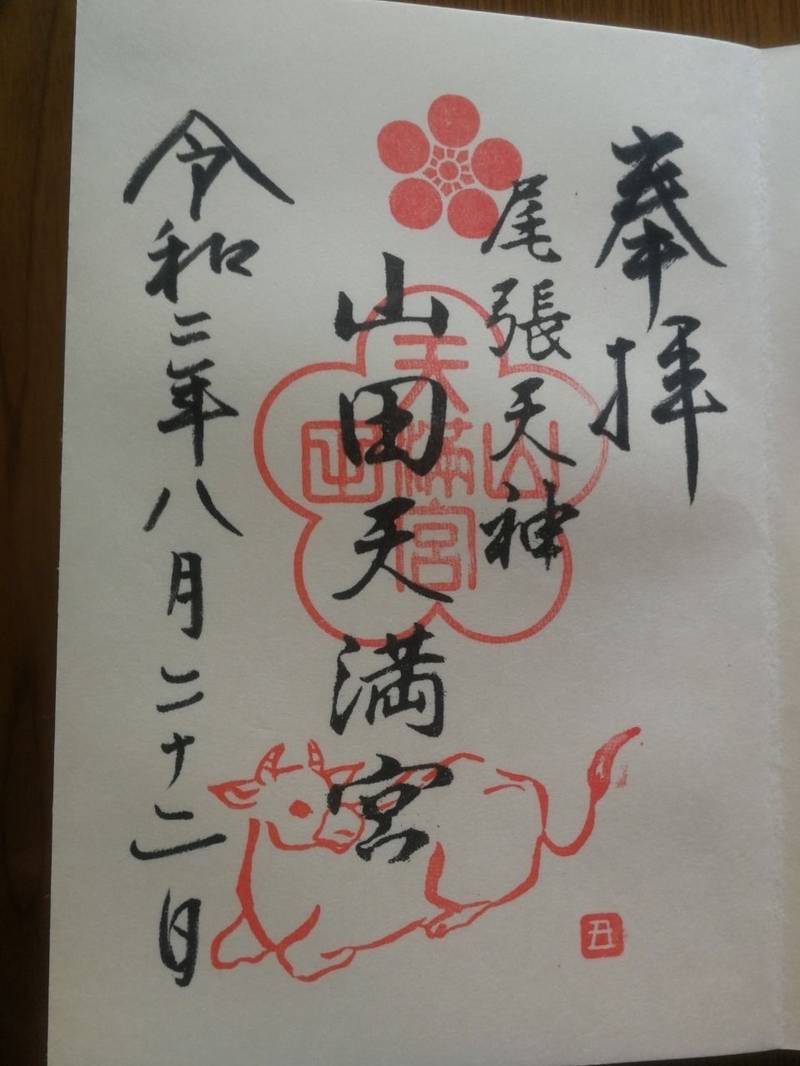 奉拝
尾張天神
山田天満宮
令和二年八月二十二日
山
天満宮
田
丑